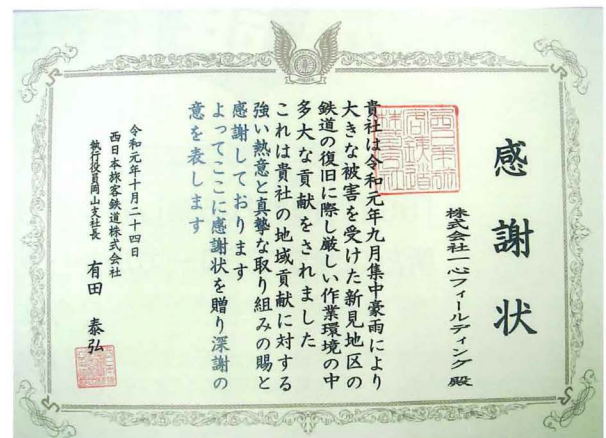 感謝状
株式会社一心フィールディング 殿
貴社は令和元年九月集中豪雨により
大きな被害を受けた新見地区の
鉄道の復旧に際し厳しい作業環境の中
多大な貢献をされました
これは貴社の地域貢献に対する
強い熱意と真摯な取り組みの賜と
感謝しております
よってここに感謝状を贈り深謝の
意を表します
令和元年十月二十四日
西日本旅客鉄道株式会社
執行役員岡山支社長 有田 泰弘